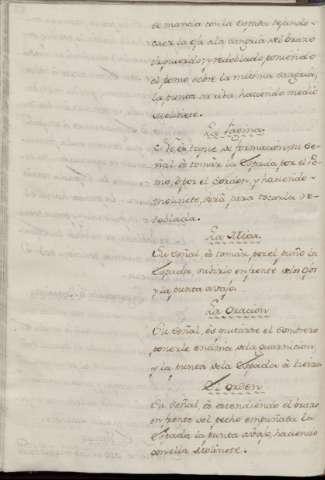 se manda con la Espada dejando
caer la oja ala sangria del brazo
izquierdo, y redoblado, poniendo
el pomo sobre la misma sangria,
la punta arriva, haciendo medio
molinete.
La fagina
Es toque de formacion, su Se-
ñal es tomar la Espada por el Po-
mo, ò por el Cordon, y haciendo
molinete, será para tocarla re-
doblada.
La Misa
Su señal, es tomar por el puño la
Espada, subirlo enfrente delos Ojos
y la punta avajo.
La Oracion
Su Señal, es quitarse el Sombrero
ponerle encima dela guarnicion,
y la punta dela Espada à tierra
El Orden
Su Señal, es estendiendo el brazo
enfrente del pecho empuñada la
Espada la punta avajo, haciendo
con ella Molinete.